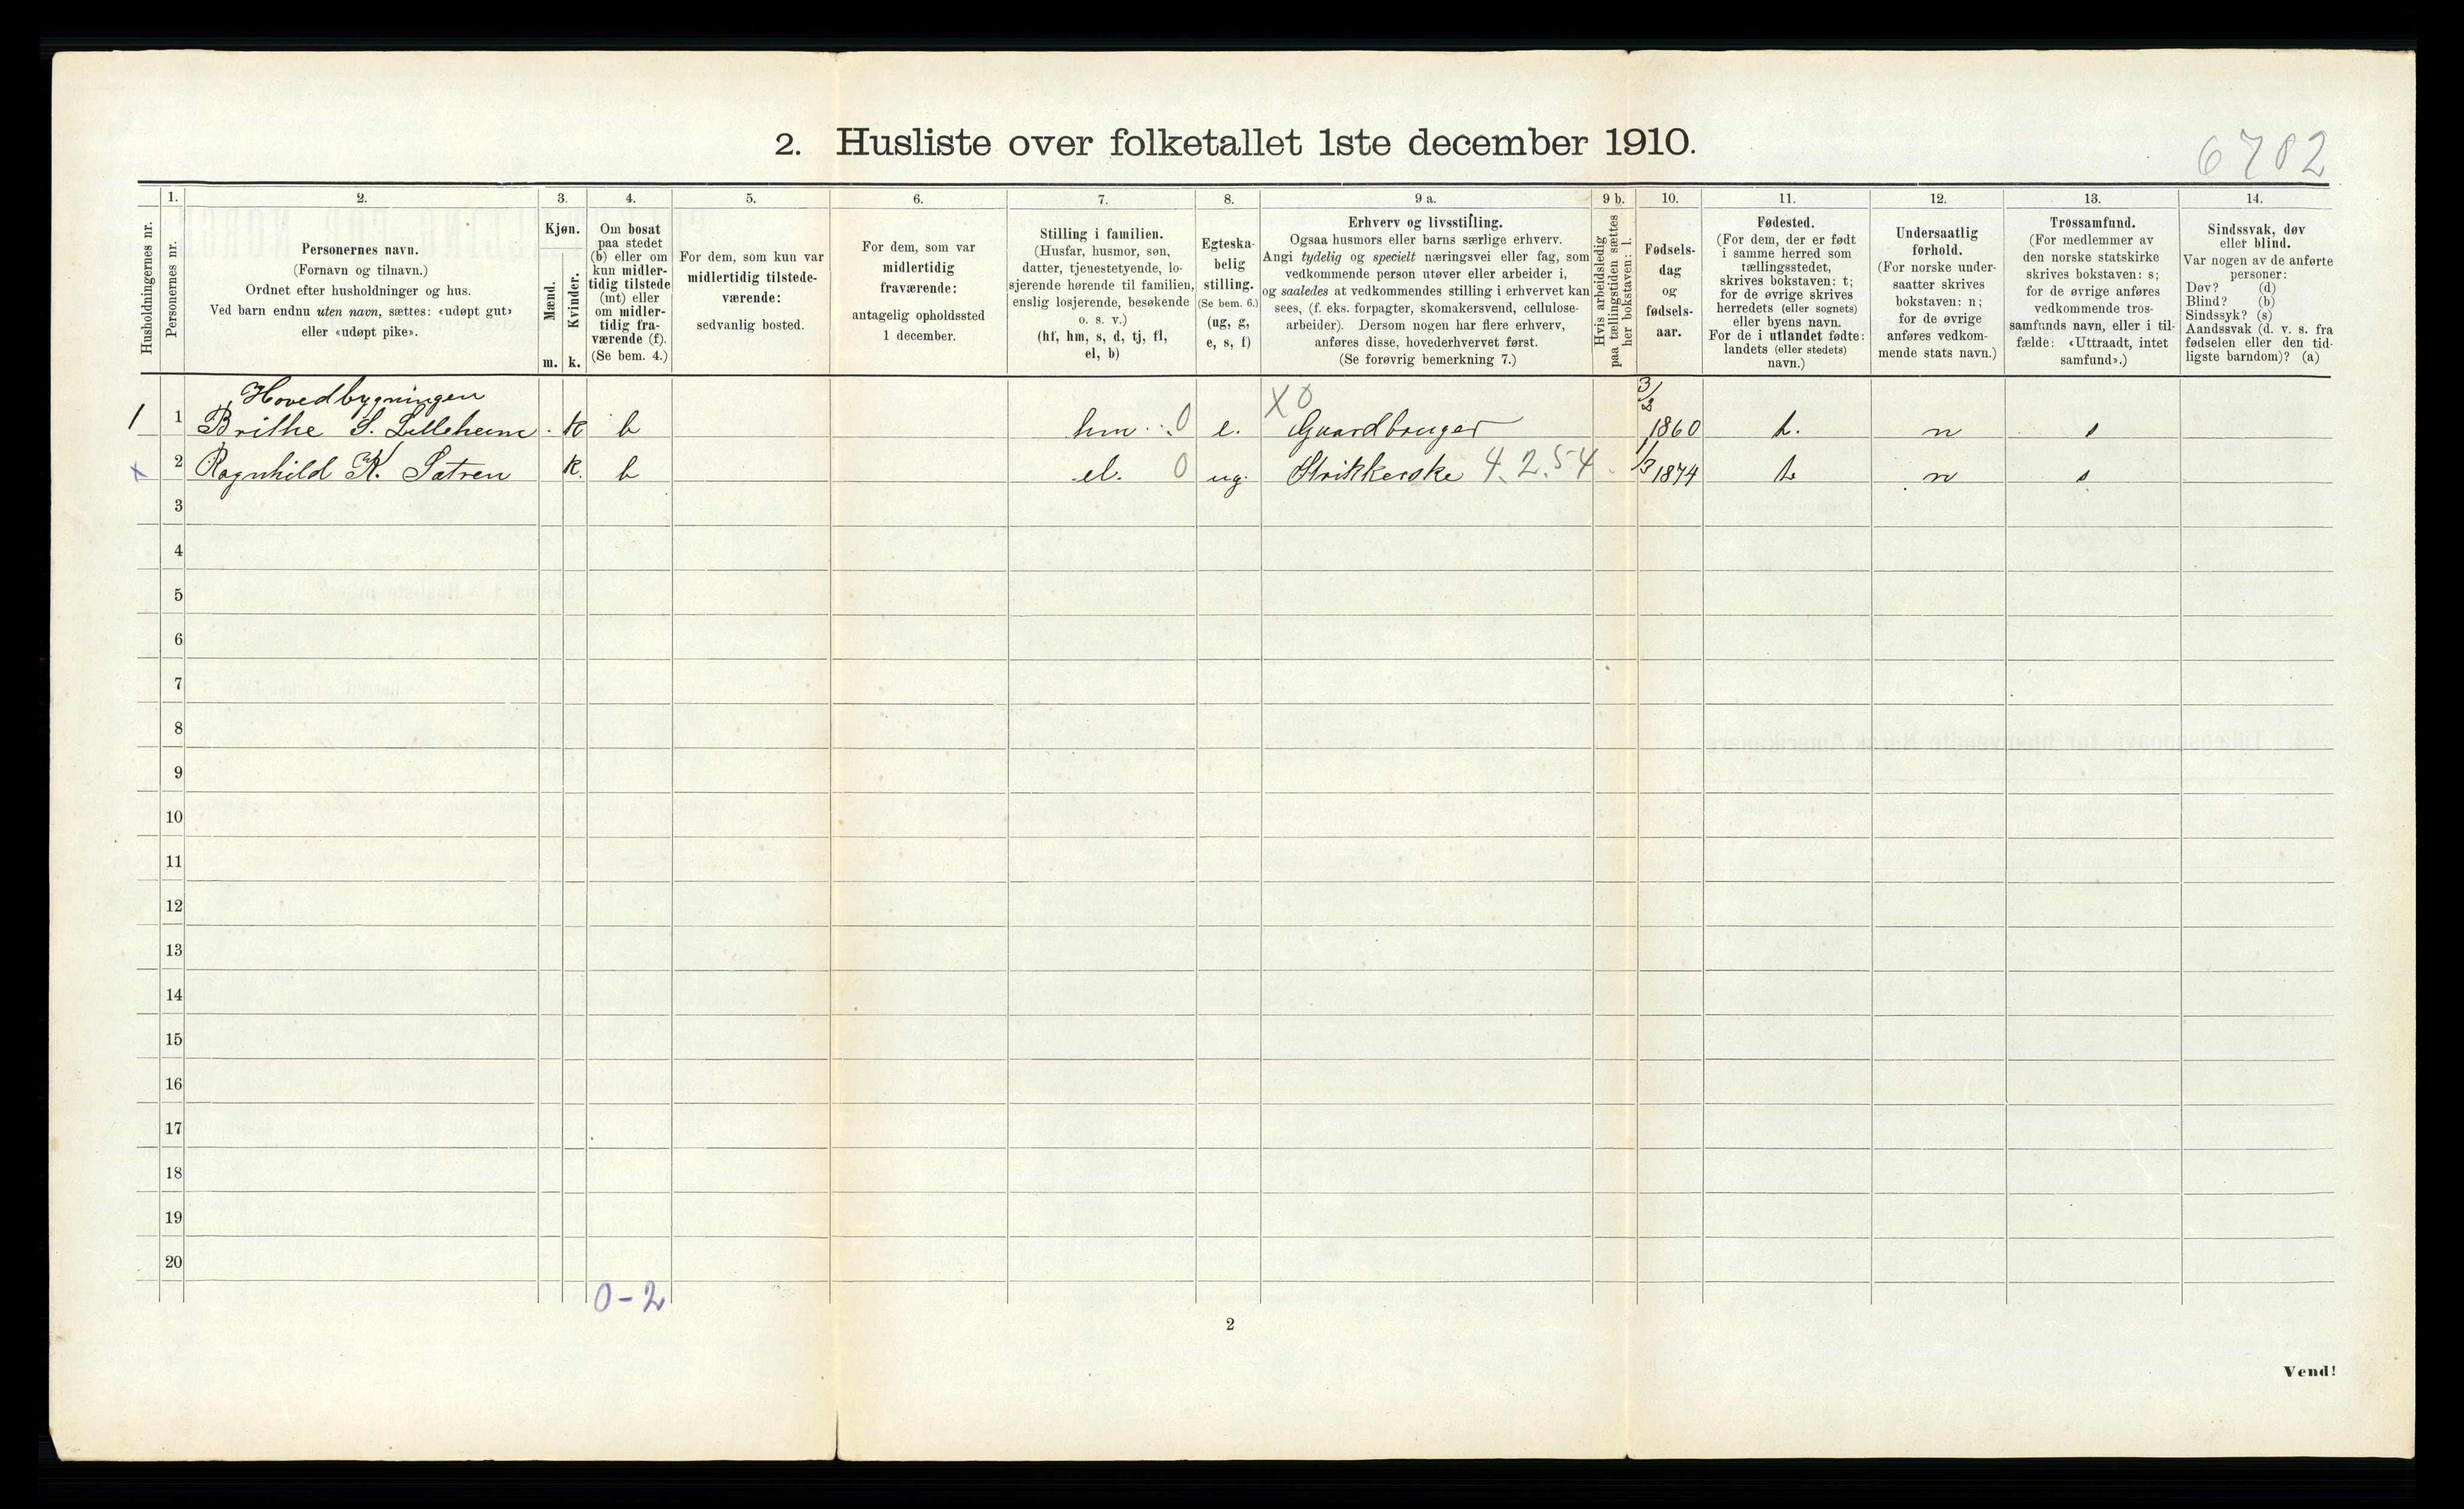 2. Husliste over folketallet 1ste december 1910.
6702
Husholdningernes nr.
1.
Personernes nr.
2.
Personernes navn.
(Fornavn og tilnavn.)
Ordnet efter husholdninger og hus.
Ved barn endnu uten navn, sættes: «udøpt gut»
eller «udøpt pike».
3.
Kjøn.
Mænd.
m.
Kvinder.
k.
4.
Om bosat
paa stedet
(b) eller om
kun midler-
tidig tilstede
(mt) eller
om midler-
tidig fra-
værende (f).
(Se bem. 4.)
5.
For dem, som kun var
midlertidig tilstede-
værende:
sedvanlig bosted.
6.
For dem, som var
midlertidig
fraværende:
antagelig opholdssted
1 december.
7.
Stilling i familien.
(Husfar, husmor, søn,
datter, tjenestetyende, lo-
sjerende hørende til familien,
enslig losjerende, besøkende
o. s. v.)
(hf, hm, s, d, tj, fl,
el, b)
8.
Egteska-
belig
stilling.
(Se bem. 6.)
(ug, g,
e, s, f)
9 a.
Erhverv og livsstilling.
Ogsaa husmors eller barns særlige erhverv.
Angi tydelig og specielt næringsvei eller fag, som
vedkommende person utøver eller arbeider i,
og saaledes at vedkommendes stilling i erhvervet kan
sees, (f. eks. forpagter, skomakersvend, cellulose-
arbeider). Dersom nogen har flere erhverv,
anføres disse, hovederhvervet først.
(Se forøvrig bemerkning 7.)
9 b.
Hvis arbeidsledig
paa tællingstiden sættes
her bokstaven: l.
10.
Fødsels-
dag
og
fødsels-
aar.
11.
Fødested.
(For dem, der er født
i samme herred som
tællingsstedet,
skrives bokstaven: t;
for de øvrige skrives
herredets (eller sognets)
eller byens navn.
For de i utlandet fødte:
landets (eller stedets)
navn.)
12.
Undersaatlig
forhold.
(For norske under-
saatter skrives
bokstaven: n;
for de øvrige
anføres vedkom-
mende stats navn.)
13.
Trossamfund.
(For medlemmer av
den norske statskirke
skrives bokstaven: s;
for de øvrige anføres
vedkommende tros-
samfunds navn, eller i til-
fælde: «Uttraadt, intet
samfund».)
14.
Sindssvak, døv
eller blind.
Var nogen av de anførte
personer:
Døv? (d)
Blind? (b)
Sindssyk? (s)
Aandssvak (d. v. s. fra
fødselen eller den tid-
ligste barndom)? (a)
Hovedbygningen
1 1 Brithe S. Lilleheim. k b hm. 0 e. X0 Gaardbruger 3/2 1860 t. n s
x 2 Ragnhild K. Satren k. b el. 0 ug. Strikkerske 4.2.54 1/3 1874 t n s
3
4
5
6
7
8
9
10
11
12
13
14
15
16
17
18
19
20
0-2
2
Vend!